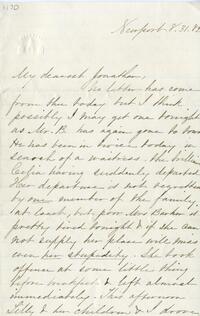 1170
Newport 8.31.
My dearest Jonathan,
No letter has come
from thee today but I think
possibly I may get one tonight
as Mr. B. has again gone to town
He has been in town today in
search of a waitress, the brilliant
having suddenly departed
Her departure is not regretted
by one member of the family,
at least, but poor Mrs Barker is
pretty tired tonight & if she can
not supply her place will miss
even her stupidity. She took
offence at some little thing
before breakfast & left almost
immediately. This afternoon
Lilly & her children & I drove